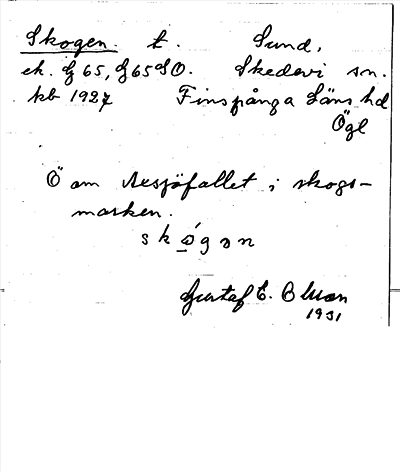 Skogen. t. Sund,
ek. G 65, G 65 SO. Skedevi sn.
kb 1927 Finspånga Läns hd
Ögl
Ö om Resjöfallet i skogs-
marken.
skógən
Gustaf E. Olsson
1931